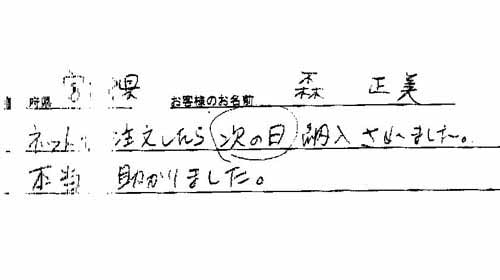 府県 宮 県 お客様のお名前 森 正美
ネット 注文したら 次の日 納入 されました。
本当 助かりました。